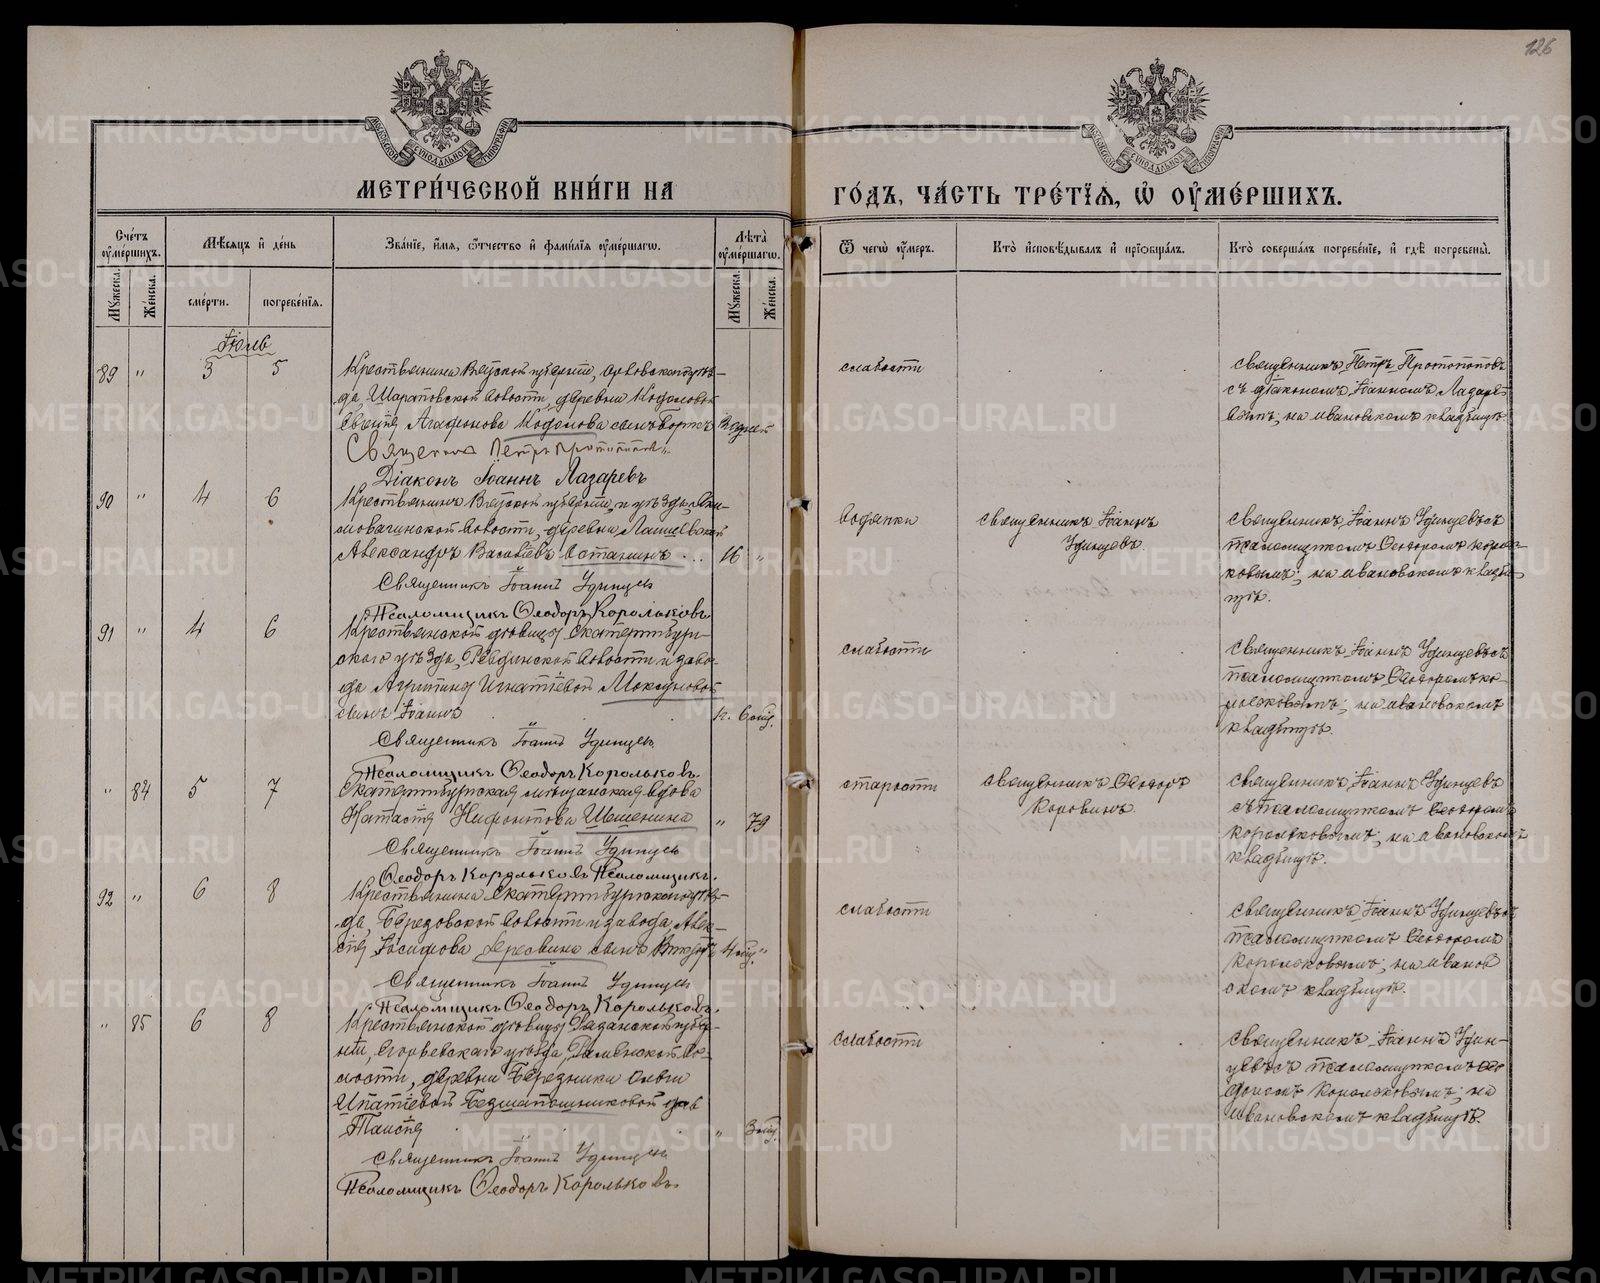 126
МЕТРИ́ЧЕСКОЙ КНИ́ГИ НА
ГО́ДЪ, ЧА́СТЬ ТРЕ́ТІѦ, Ѡ ОУМЕ́РШИХЪ.
Сче́тъ оумершихъ.
Мѣсяцъ и день
Зва́ніе, и́мя, ѻтчество и фами́лія оуме́ршагѡ.
Лѣта̀ оуме́ршагѡ.
Ѿ чегѡ оумеръ.
Кто̀ исповѣдывалъ и пріѡбща́лъ.
Кто̀ соверша́лъ погребе́ніе, и гдѣ погребены.
Мужеска.
Женска.
сме́рти.
погребе́нія.
Мужеска.
Женска.
Іюль
89 " 3 5
Крестьянина Вятской губерніи, Орловскаго уѣз-
да, Шараповской волости, деревни
Агафонова сынъ
Священник Петръ Протопоповъ
Діаконъ Іоаннъ Лазаревъ
слабости
священникъ Петръ Протопоповъ
съ діакономъ Іоанномъ Лазаре-
вымъ; на ивановскомъ кладбищѣ.
90 " 4 6
Крестьянинъ Вятской губерніи и уѣзда,
волости, деревни
Александръ Васильевъ Останинъ
16 "
Священникъ Іоаннъ Удинцев
Псаломщикъ Ѳеодоръ Корольковъ.
водянки
священникъ Іоаннъ
Удинцевъ.
священникъ Іоаннъ Удинцевъ съ
псаломщикомъ Ѳеодоромъ Король-
ковымъ; на ивановскомъ кладби-
щѣ.
91 " 4 6
Крестьянской дѣвицы Екатеринбург-
скаго уѣзда, Ревдинской волости и заво-
да Агрипины Игнатіевой
сынъ Іоаннъ
6 мѣс.
Священникъ Іоаннъ Удинцев
Псаломщикъ Ѳеодоръ Корольковъ.
слабости
священникъ Іоаннъ Удинцевъ съ
псаломщикомъ Ѳеодоромъ Ко-
рольковымъ; на ивановскомъ
кладбищѣ.
" 84 5 7
Екатеринбургская мѣщанская вдова
Настасія Нифонтова
" 79
Священникъ Іоаннъ Удинцев
Ѳеодоръ Корольковъ Псаломщикъ.
старости
священникъ Ѳеодоръ
Коровинъ.
священникъ Іоаннъ Удинцевъ
съ псаломщикомъ Ѳеодоромъ
Корольковымъ; на ивановскомъ
кладбищѣ.
92 " 6 8
Крестьянина Екатеринбургскаго уѣз-
да, Березовской волости и завода, Алек-
сѣя Іосифова сынъ Викторъ
4 мѣс. "
Священникъ Іоаннъ Удинцев
Псаломщикъ Ѳеодоръ Корольковъ.
слабости
священникъ Іоаннъ Удинцевъ съ
псаломщикомъ Ѳеодоромъ
Корольковымъ; на иванов
скомъ кладбищѣ.
" 85 6 8
Крестьянской дѣвицы Рязанской губер-
ніи, Егорьевскаго уѣзда, Раменской во-
лости, деревни Березники Ольги
Ипатіевой Безшапошниковой дочь
Таисія
" 3 мѣс.
Священникъ Іоаннъ Удинцев
Псаломщикъ Ѳеодоръ Корольковъ.
слабости
священникъ Іоаннъ Удин-
цевъ съ псаломщикомъ Ѳео
доромъ Корольковымъ; на
ивановскомъ кладбищѣ.
METRIKI.GASO-URAL.RU